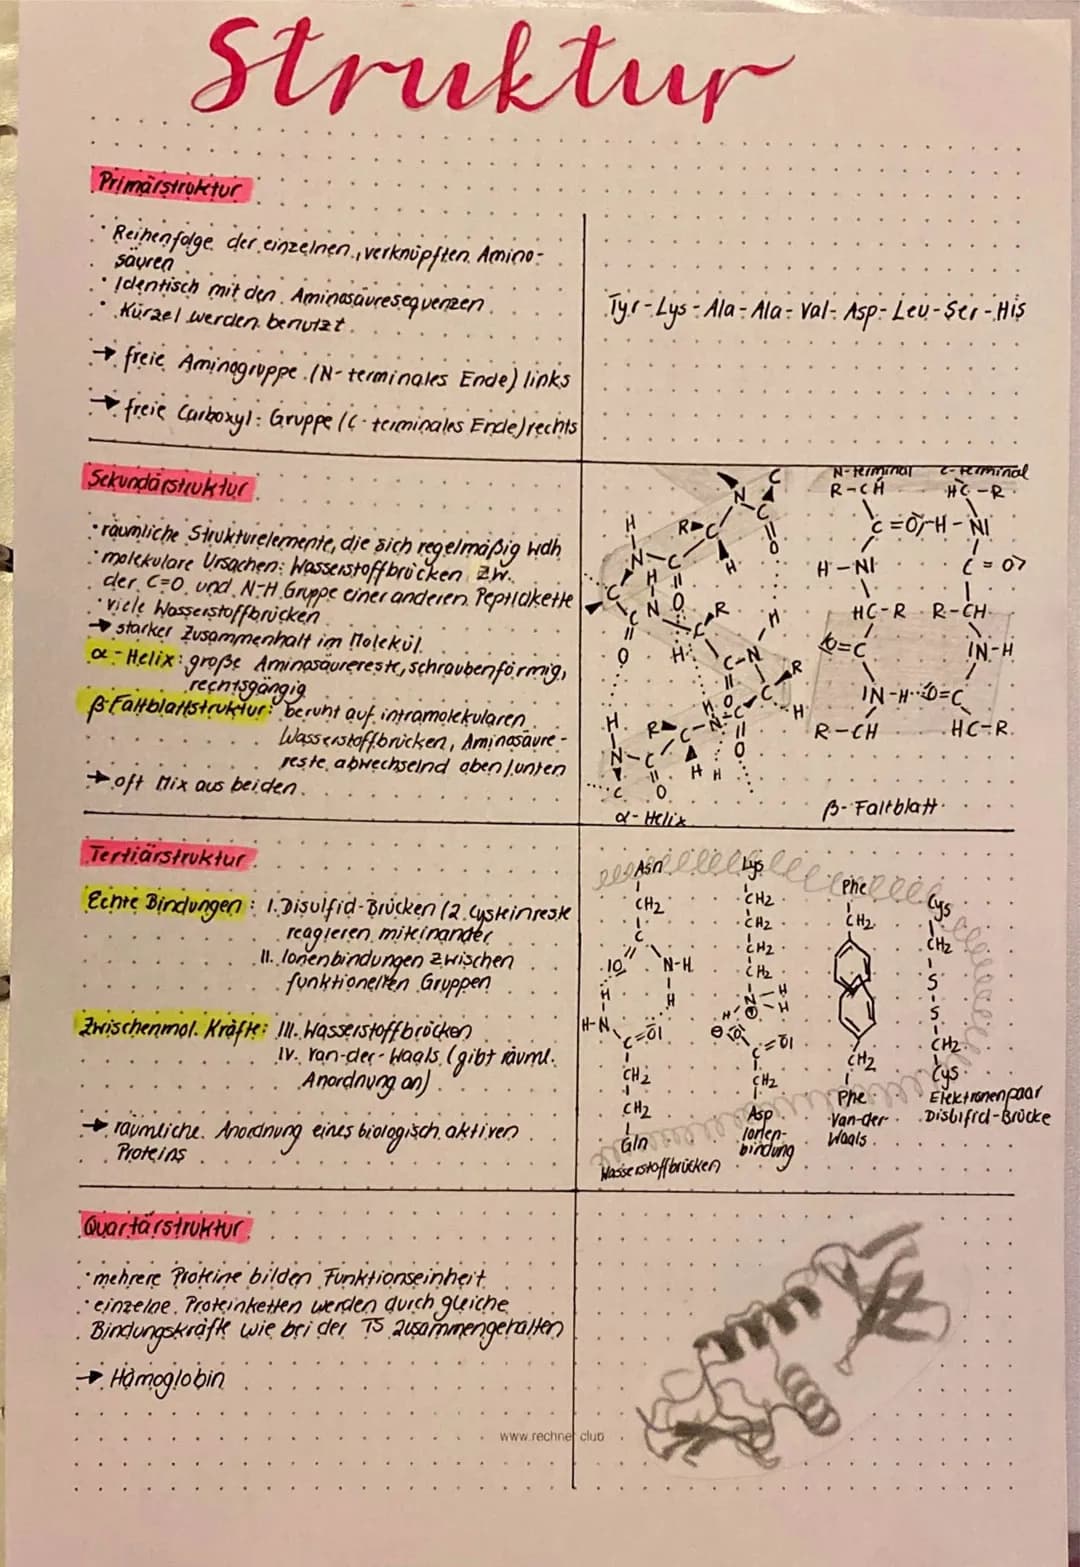 Struktur
Primärstruktur
· Reihenfolge der einzelnen, verknüpften Amino-
säuren
· Identisch mit den Aminosäuresequenzen
· Kürzel werden benutzt
→ freie Aminogruppe (N-terminales Ende) links
→ freie Carboxyl-Gruppe (C-terminales Ende) rechts
Tyr-Lys-Ala-Ala-Val-Asp-Leu-Ser-His
Sekundärstruktur
· räumliche Strukturelemente, die sich regelmäßig wdh
· molekulare Ursachen: Wasserstoffbrücken zw.
der C=O und N-H Gruppe einer anderen Peptidkette
· viele Wasserstoffbrücken
→ starker Zusammenhalt im Molekül
α-Helix: große Aminosäurereste, schraubenförmig,
rechtsgängig
β-Faltblattstruktur: beruht auf intramolekularen
Wasserstoffbrücken, Aminosäure-
reste abwechselnd oben/unten
→ oft Mix aus beiden
α-Helix
N-terminal C-terminal
R-CH HC-R
C=O H-N
H-N C=O
HC-R R-CH
O=C N-H
N-H O=C
R-CH HC-R
β-Faltblatt
Tertiärstruktur
Echte Bindungen: I. Disulfid-Brücken (2 Cysteinreste
reagieren miteinander
II. Ionenbindungen zwischen
funktionellen Gruppen
Zwischenmol. Kräfte: III. Wasserstoffbrücken
IV. van-der-Waals (gibt räuml.
Anordnung an)
→ räumliche Anordnung eines biologisch aktiven
Proteins
Asn
CH2
C
O N-H
H H
H-N
C=O
CH2
CH2
Gln
Wasserstoffbrücken
Lys
CH2
CH2
CH2
CH2
N H
H H
O
C=O
CH2
Asp
Ionen-
bindung
Phe
CH2
CH2
Phe
Van-der-
Waals
Cys
CH2
S
S
CH2
Cys
Elektronenpaar
Disulfid-Brücke
Quartärstruktur
· mehrere Proteine bilden Funktionseinheit
· einzelne Proteinketten werden durch gleiche
Bindungskräfte wie bei der TS zusammengehalten
→ Hämoglobin
www.rechner.club